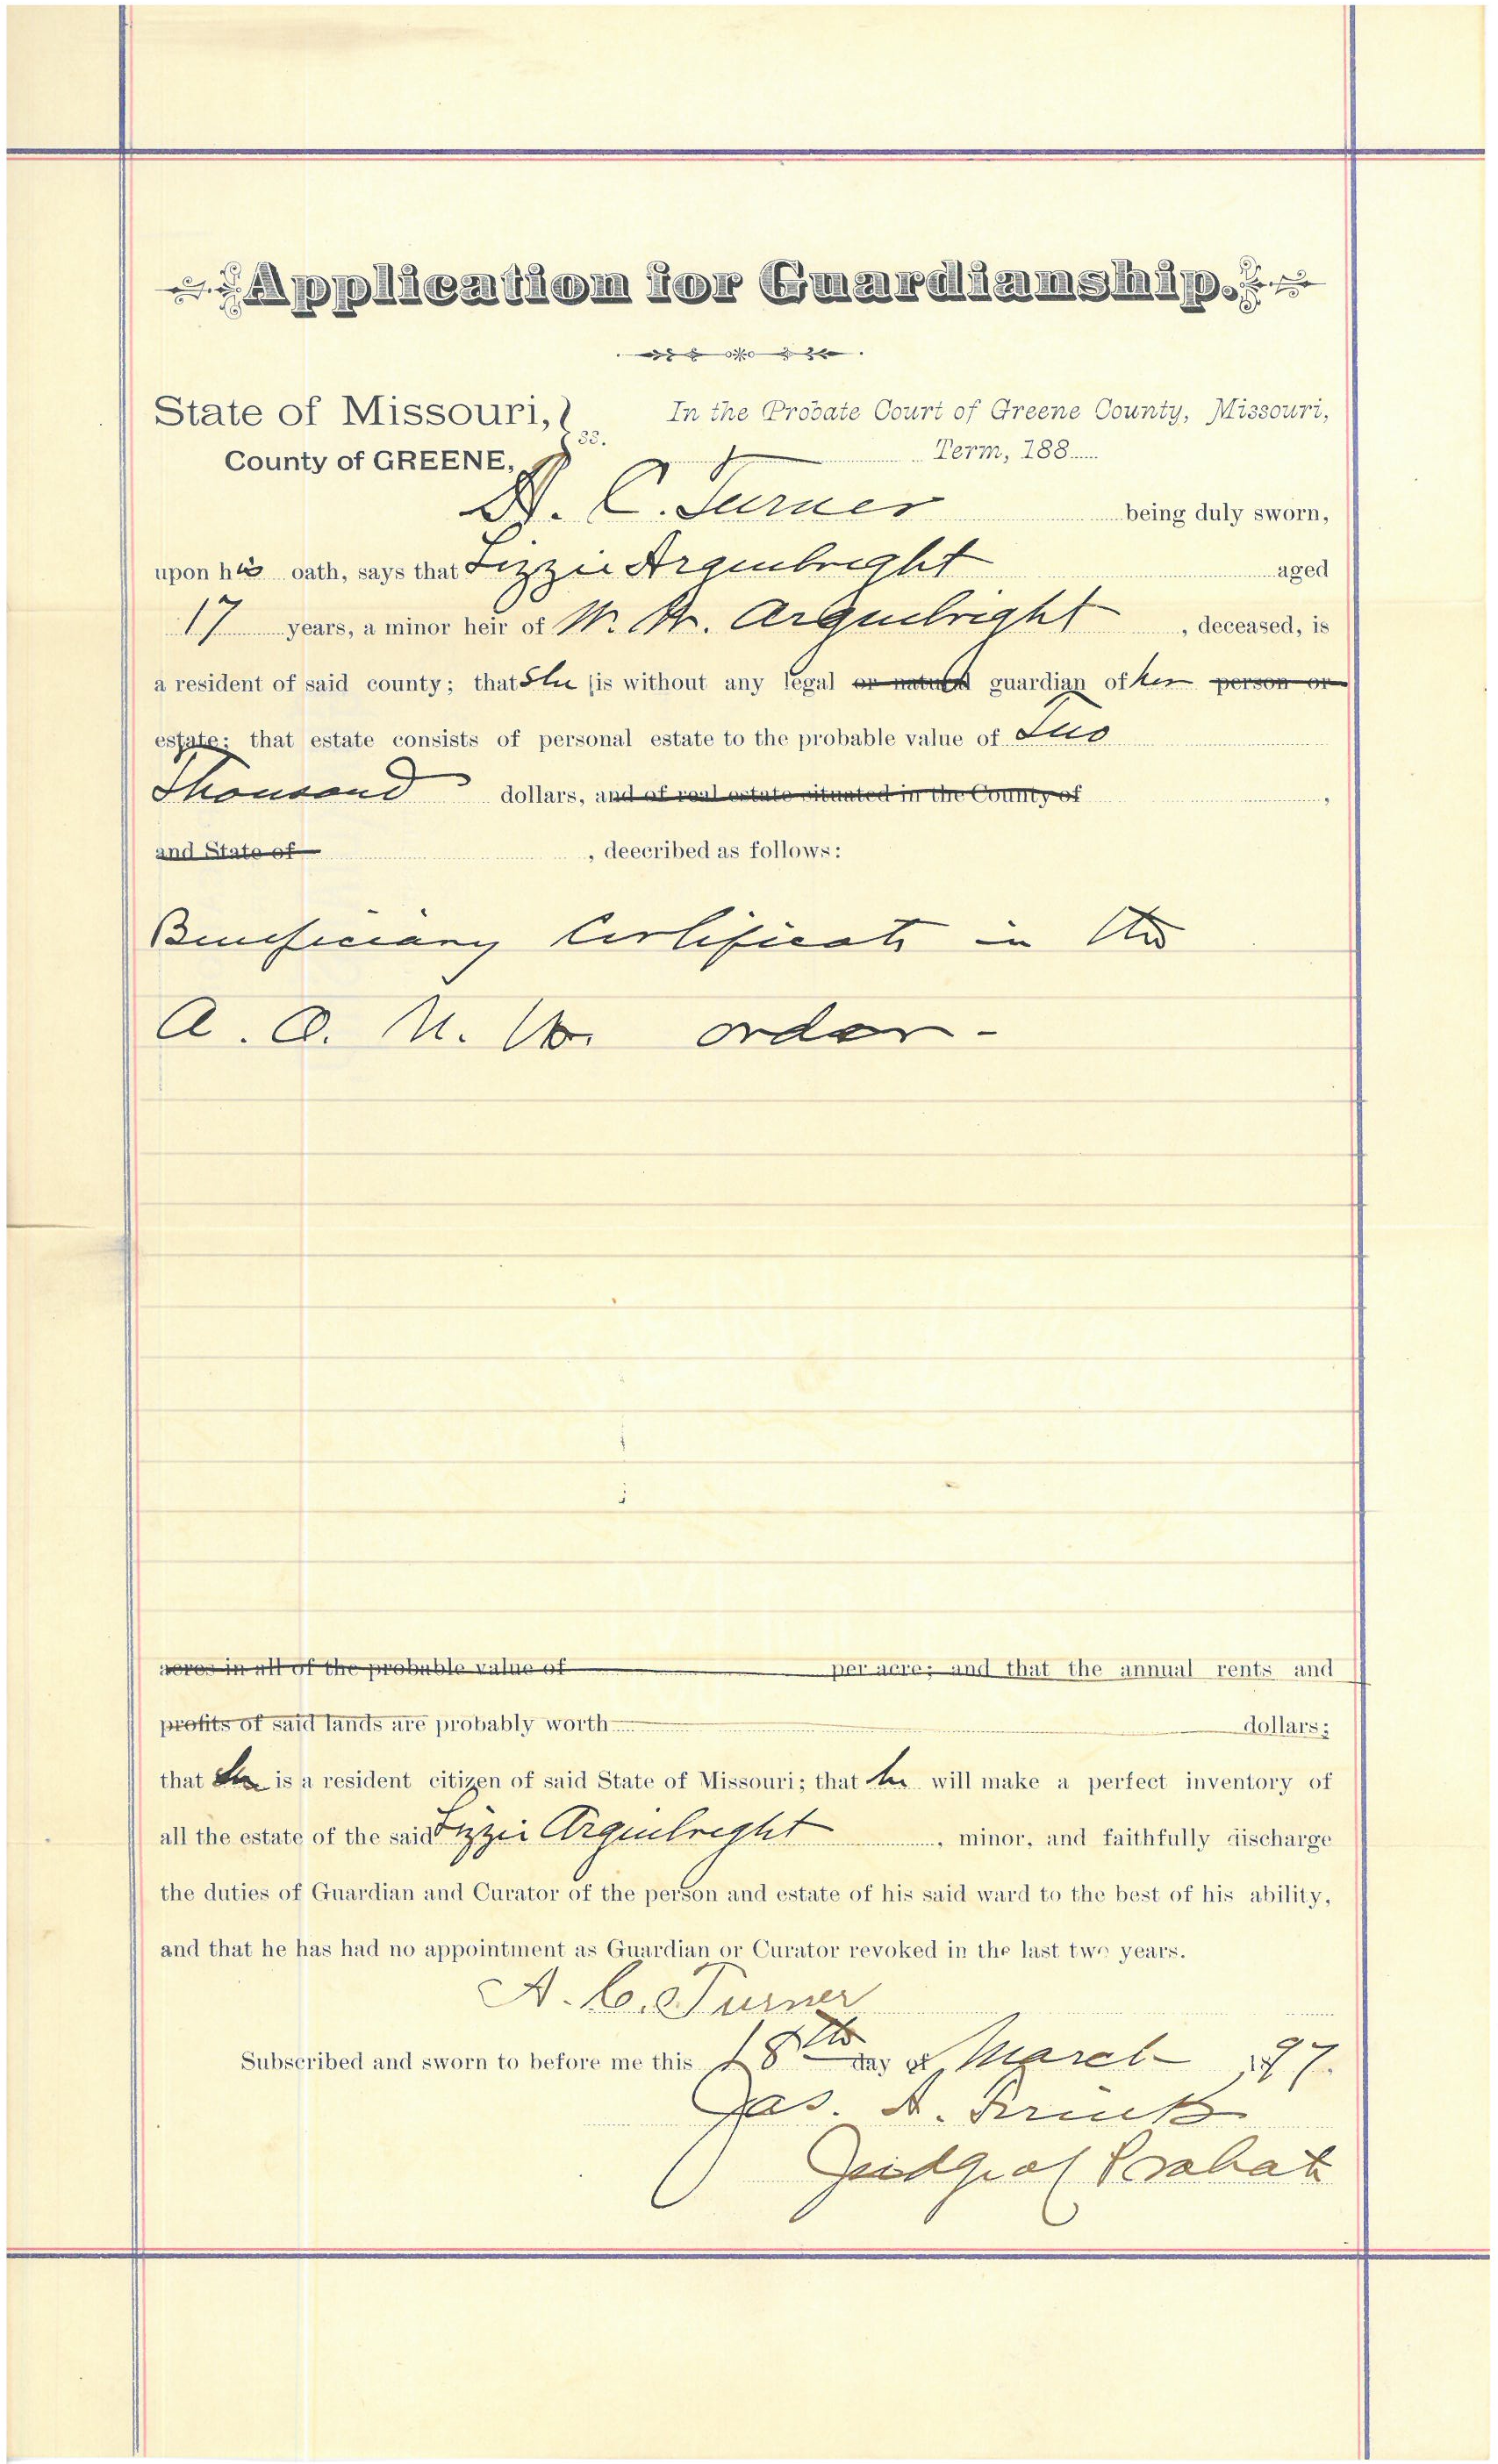 Application for Guardianship.
State of Missouri, In the Probate Court of Greene County, Missouri,
County of GREENE, ss. Term, 188
A. C. Turner being duly sworn,
upon his oath, says that Lizzie Arquebright aged
17 years, a minor heir of W. W. Arquebright, deceased, is
a resident of said county; that she is without any legal or natural guardian of her person or
estate; that estate consists of personal estate to the probable value of Two
Thousand dollars, and of real estate situated in the County of ,
and State of , deecribed as follows:
Beneficiary Certificate in the
A. O. U. W. order -
acres in all of the probable value of per acre; and that the annual rents and
profits of said lands are probably worth dollars;
that he is a resident citizen of said State of Missouri; that he will make a perfect inventory of
all the estate of the said Lizzie Arquebright, minor, and faithfully discharge
the duties of Guardian and Curator of the person and estate of his said ward to the best of his ability,
and that he has had no appointment as Guardian or Curator revoked in the last two years.
A. C. Turner
Subscribed and sworn to before me this 18th day of March 1897.
Jas. A.
Judge of Probate